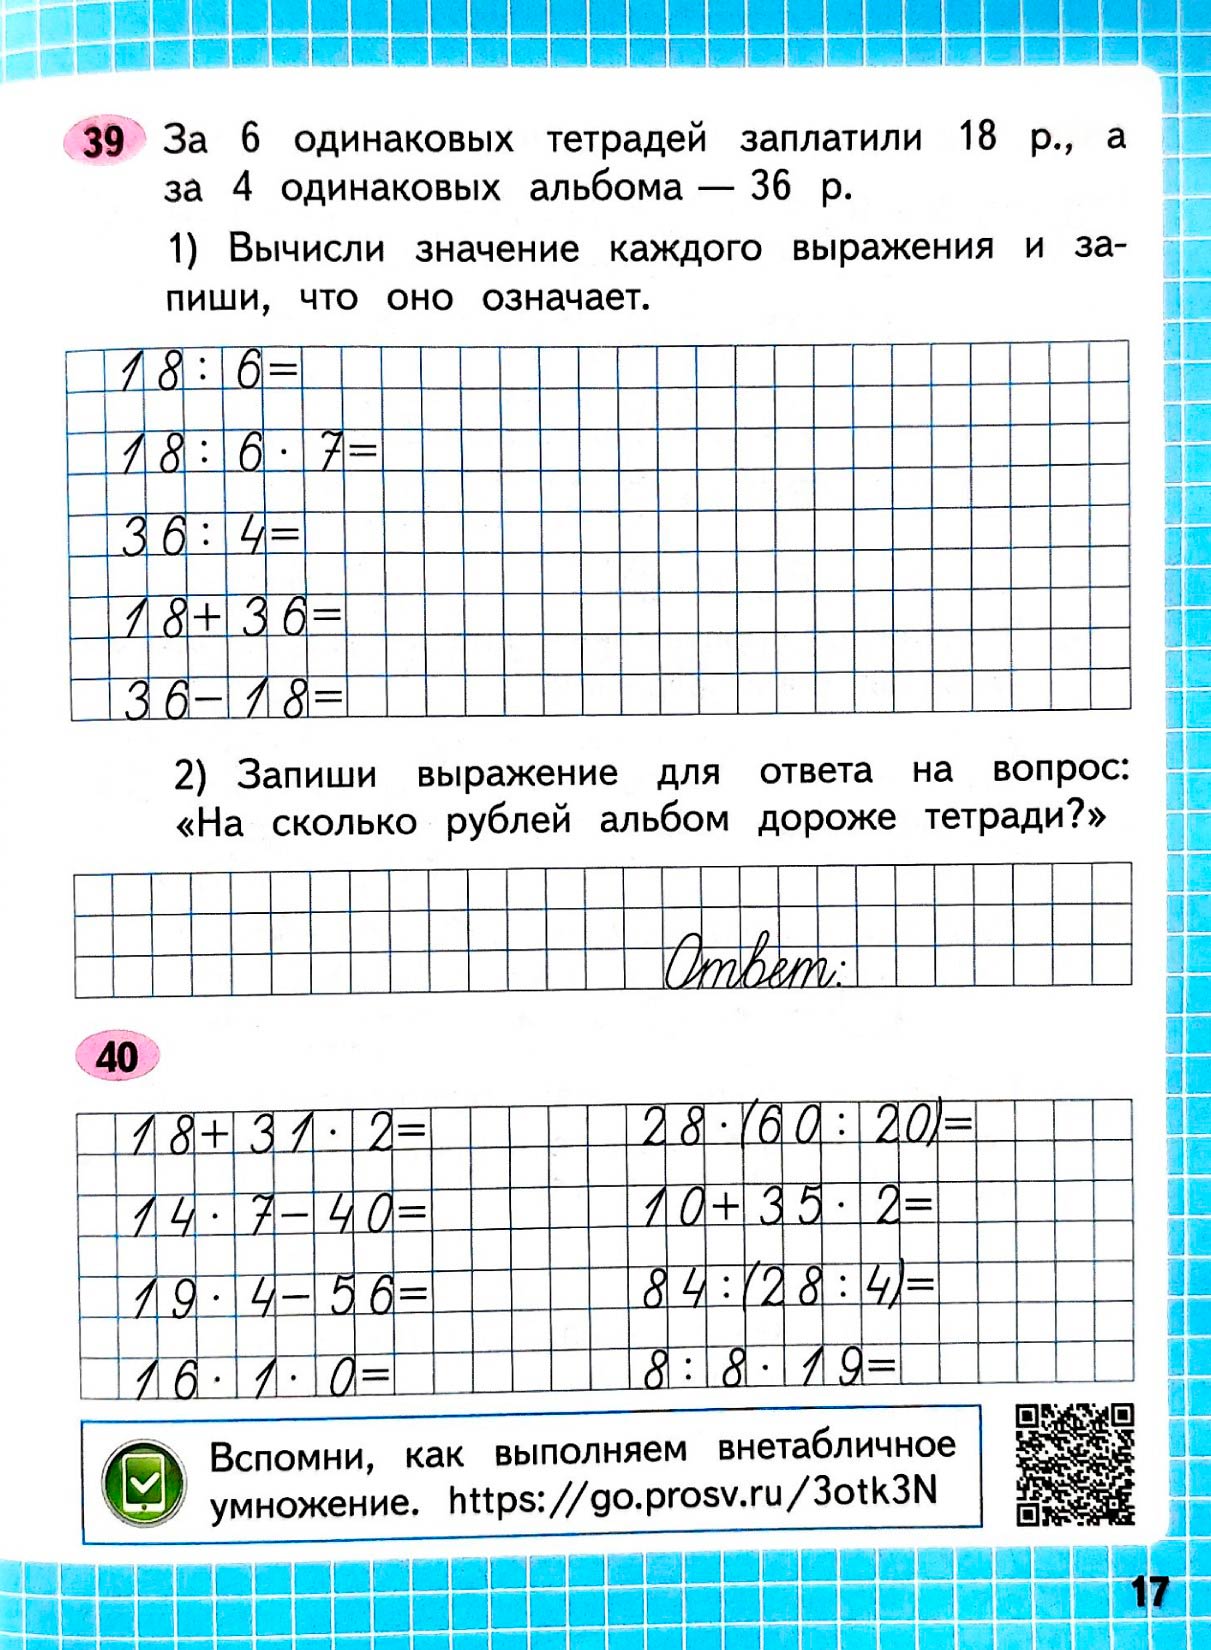 39 За 6 одинаковых тетрадей заплатили 18 р., а
за 4 одинаковых альбома — 36 р.
1) Вычисли значение каждого выражения и за-
пиши, что оно означает.
18 : 6=
18 : 6 · 7=
36 : 4=
18+36=
36−18=
2) Запиши выражение для ответа на вопрос:
«На сколько рублей альбом дороже тетради?»
Ответ:
40
18+31 · 2= 28 · (60 : 20)=
14 · 7−40= 10+35 · 2=
19 · 4−56= 84 : (28 : 4)=
16 · 1 · 0= 8 : 8 · 19=
Вспомни, как выполняем внетабличное
умножение. https://go.prosv.ru/3otk3N
17